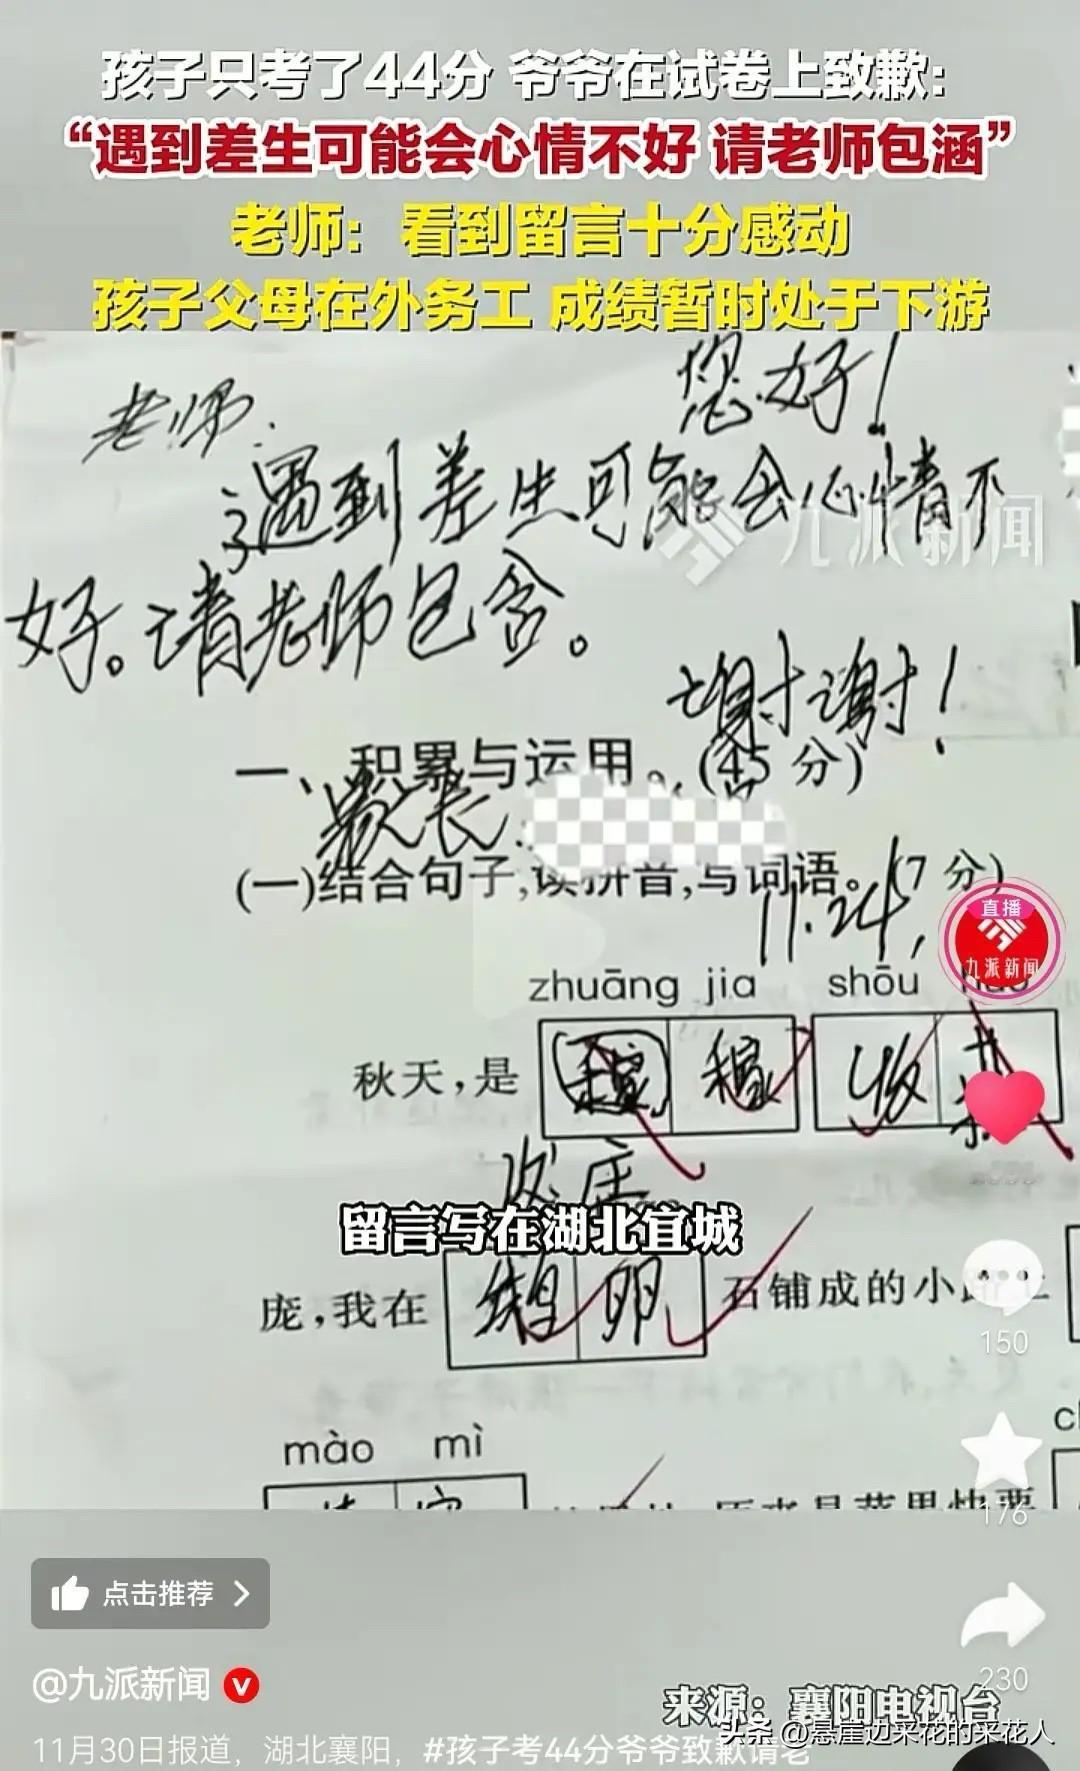 孩子只考了44分 爷爷在试卷上致歉：
“遇到差生可能会心情不好 请老师包涵”
老师：看到留言十分感动
孩子父母在外务工 成绩暂时处于下游
老师.
您好！
遇到差生可能会心情不
九派新闻
好。请老师包含。
谢谢！
一、积累与运用。(45分)
家长：
(一)结合句子,读拼音,写词语。(7分)
11.24,
直播
九派新闻
zhuāng jia shōu huò
秋天,是 稼 收
庄
留言写在湖北宜城
庞,我在 鹅卵 石铺成的小路上
150
mào mì
176
点击推荐
230
@九派新闻
来源：襄阳电视台
头条 @悬崖边采花的采花人
11月30日报道，湖北襄阳，#孩子考44分爷爷致歉请老